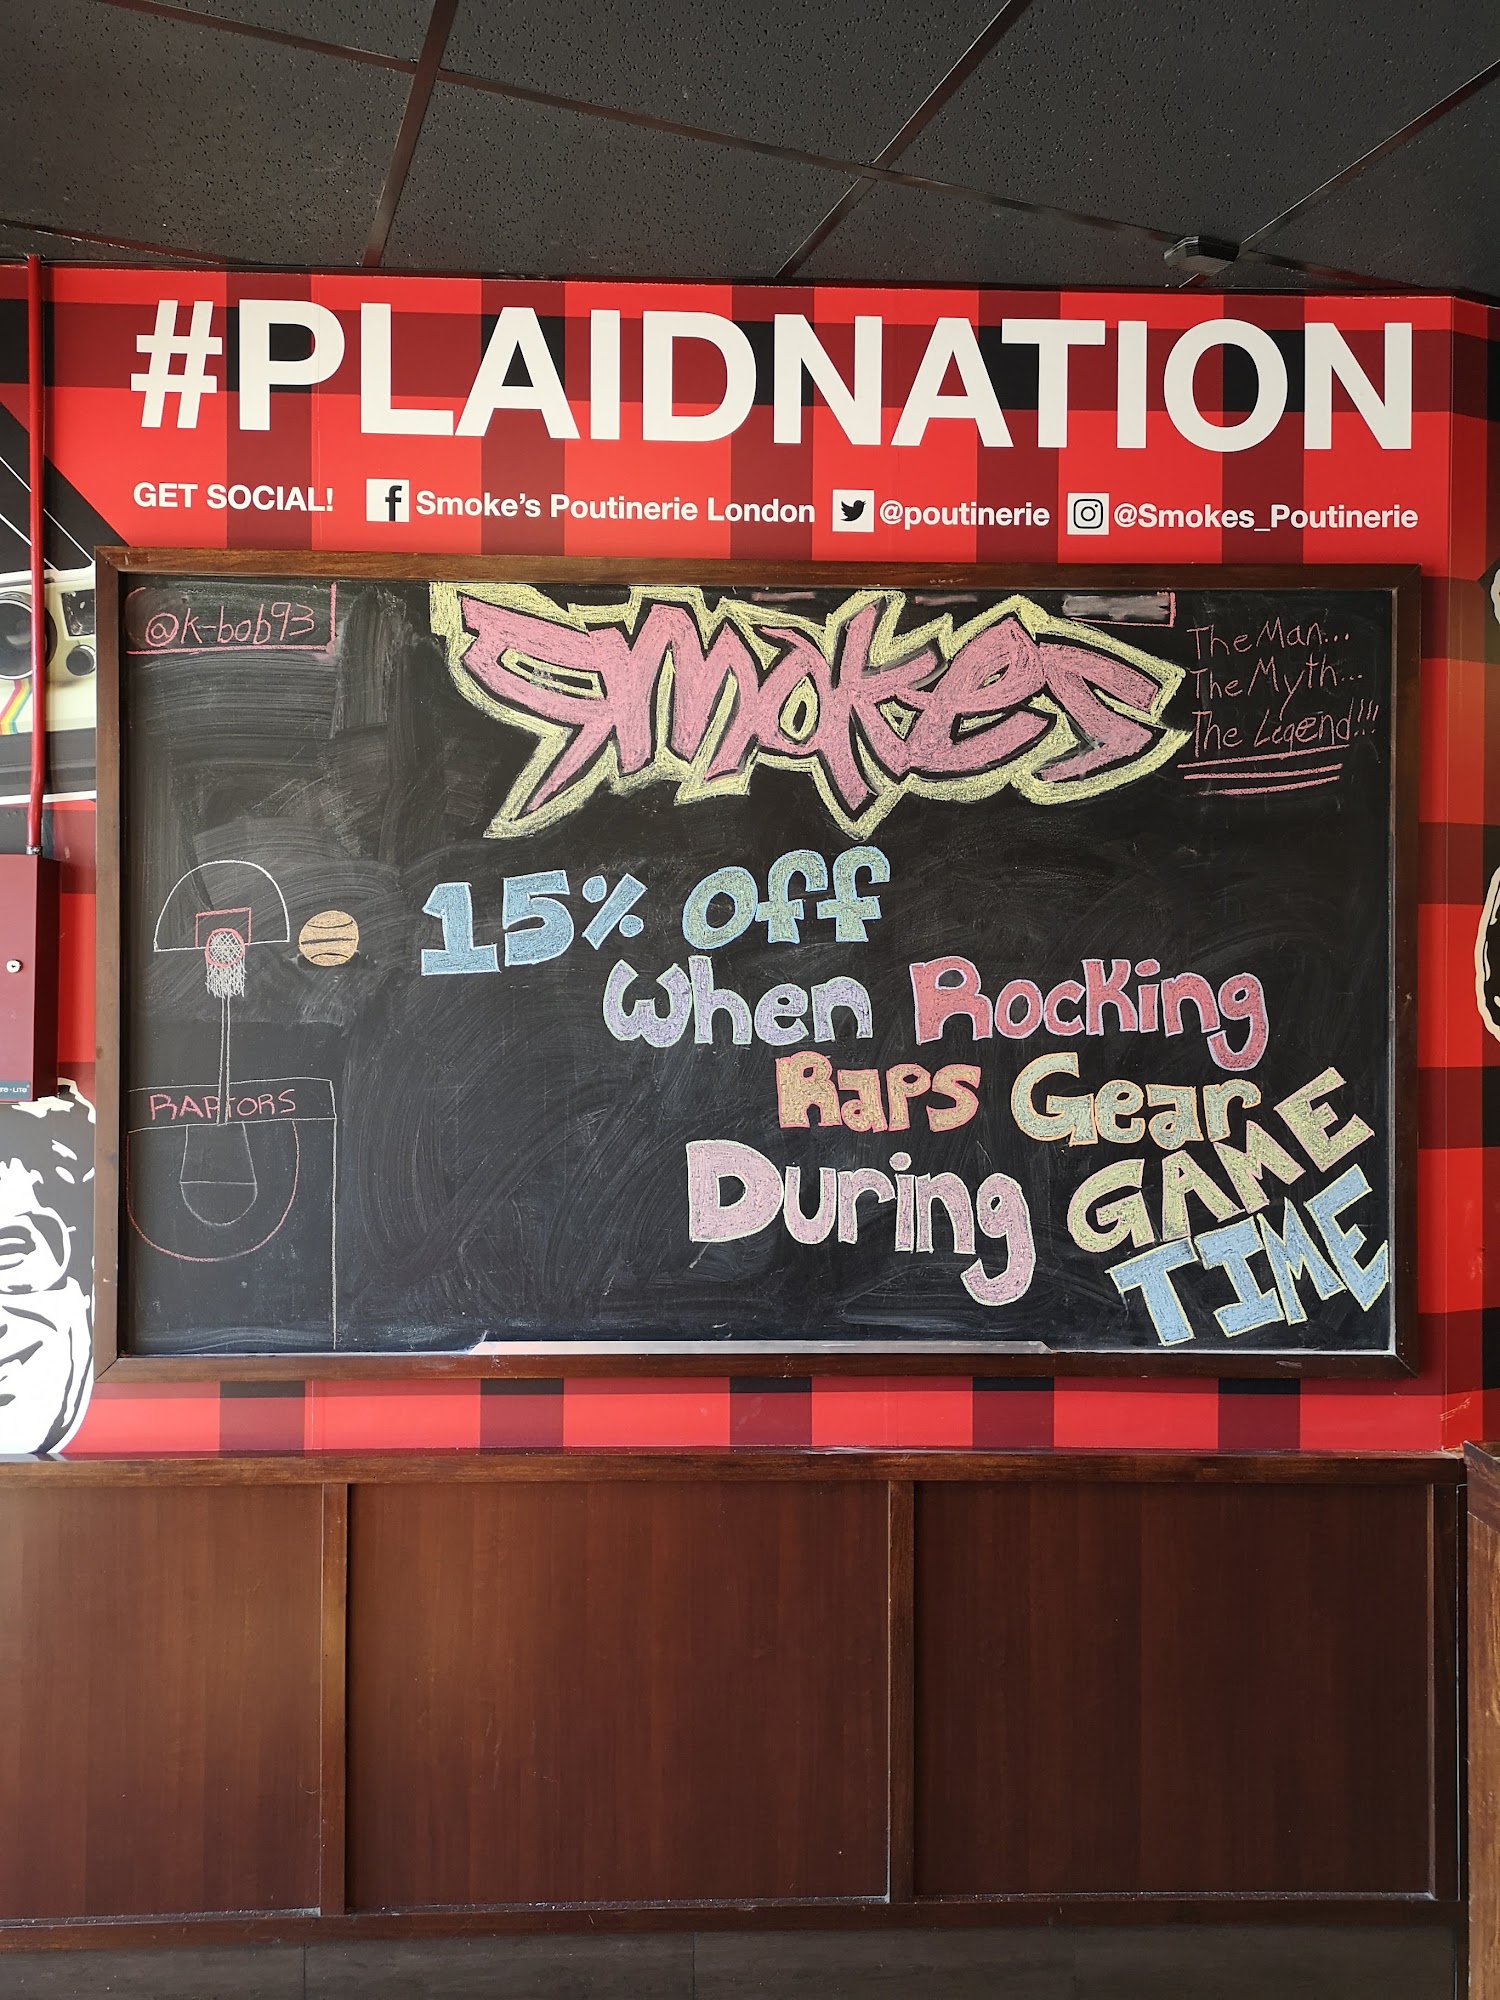 #PLAIDNATION
GET SOCIAL! f Smoke's Poutinerie London @poutinerie @Smokes_Poutinerie
@k-bob93
Smokes
The Man...
The Myth...
The Legend!!!
15% off
When Rocking
Raps Gear
During GAME
TIME
RAPTORS